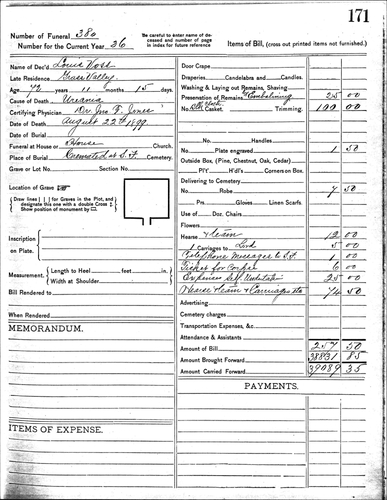 171
Number of Funeral 380
Number for the Current Year 36
Be careful to enter name of deceased and number of page in index for future reference
Items of Bill, (cross out printed items not furnished.)
Name of Dec'd Louis Voss
Late Residence Grass Valley.
Age 72 years 11 months 15 days.
Cause of Death Uraemia
Certifying Physician Dr. Jno T. Jones
Date of Death August 22th 1899.
Date of Burial
Funeral at House or House Church,
Place of Burial Cremated at S.F. Cemetery.
Grave or Lot No. Section No.
Location of Grave
Draw lines [ ] for Graves in the Plot, and designate this one with a double Cross
Show position of monument by
Inscription on Plate.
Measurement, Length to Heel feet in.
Width at Shoulder
Bill Rendered to
When Rendered
MEMORANDUM.
ITEMS OF EXPENSE.
Door Crape
Draperies Candelabra and Candles.
Washing & Laying out Remains, Shaving
Presevation of Remains Embalming 25 00
No. Cloth Casket. Trimming. 100 00
No. Handles
Plate engraved 1 50
Outside Box, (Pine, Chestnut, Oak, Cedar)
Pl't'. H'dl's Corners on Box.
Delivering to Cemetery
No. Robe 7 50
Prs. Gloves Linen Scarfs.
Use of Dor. Chairs
Flowers
Hearse & team 12 00
1 Carriages to Lord 5 00
Telephone messages to S.F. 1 00
Ticket for Corpse 6 00
Expenses Self Undertaker 25 00
Hearse team & Carriages etc 74 50
Advertising
Cemetery charges
Transportation Expenses, &c.
Attendance & Assistants
Amount of Bill 257 50
Amount Brought Forward 38831 85
Amount Carried Forward 39089 35
PAYMENTS.